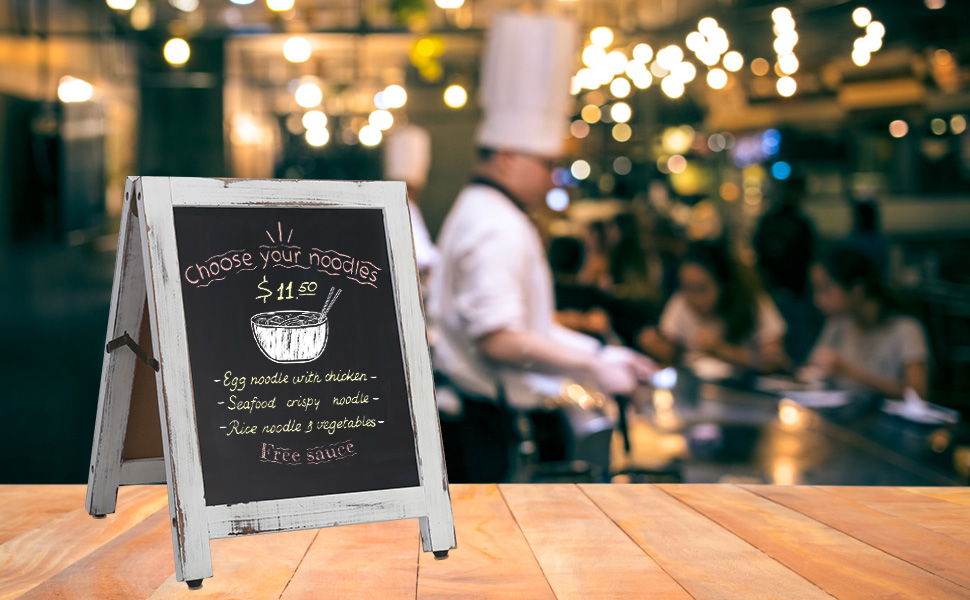 Choose your noodles
$11.50
-Egg noodle with chicken-
-Seafood crispy noodle-
-Rice noodle & vegetables-
Free sauce